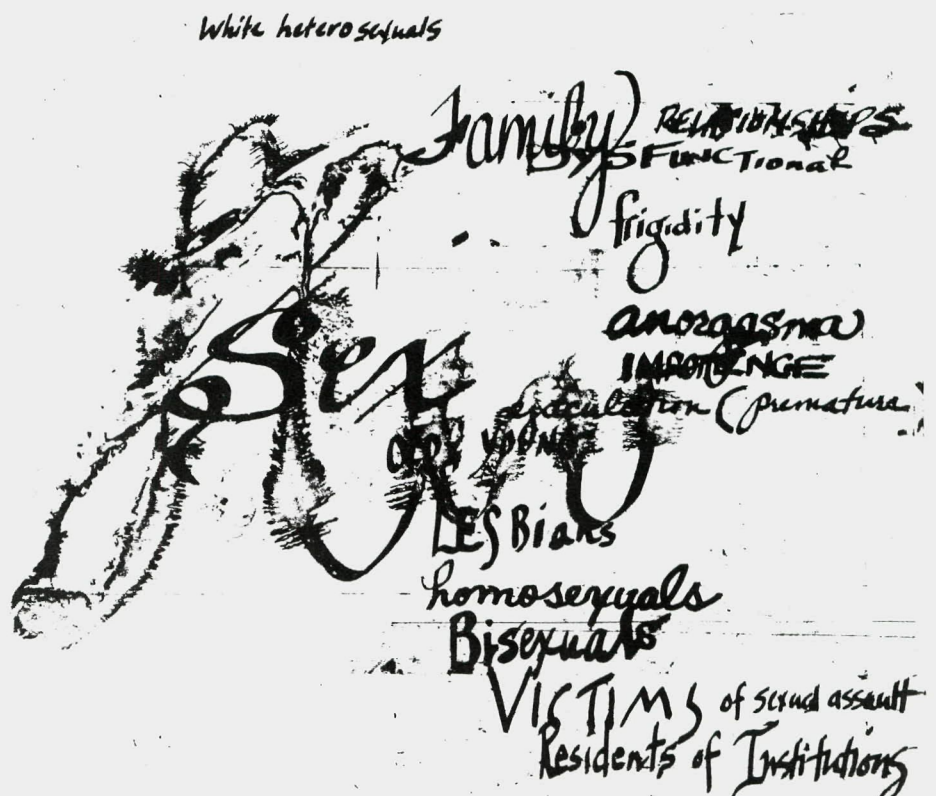 White heterosexuals
Family RELATIONSHIPS
DYSFUNCTIONAL
frigidity
anorgasma
Sex
IMPOTENCE
ejaculation (premature
LESBians
homosexuals
Bisexuals
VICTIMS of sexual assault
Residents of Institutions